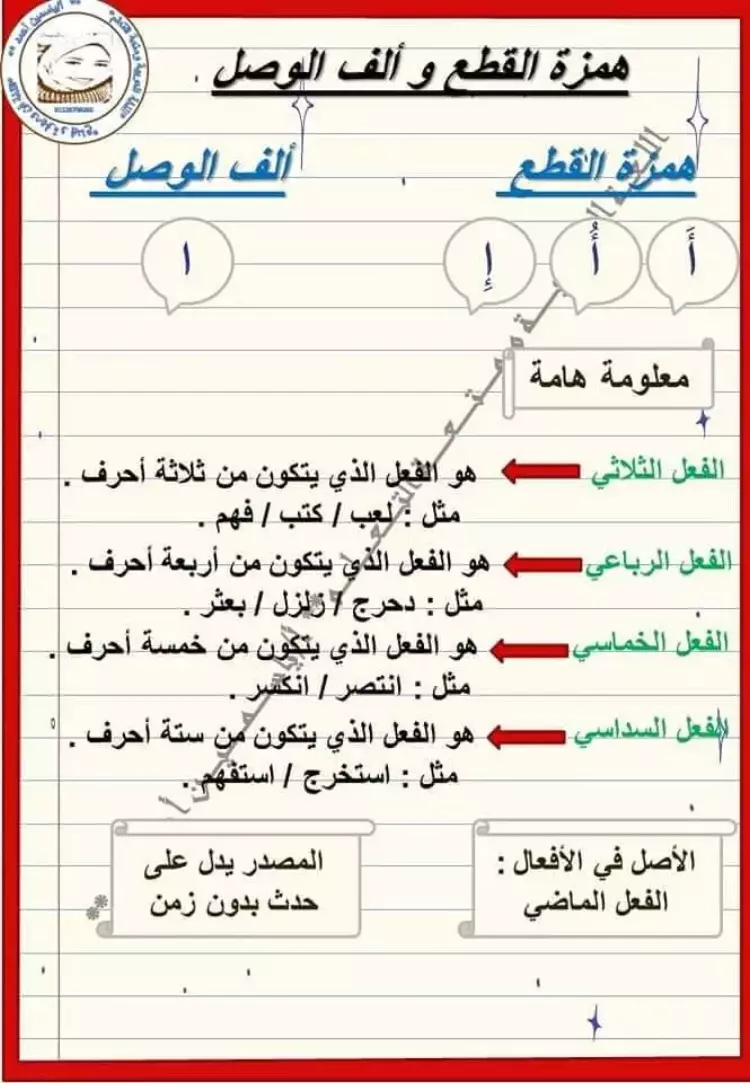 همزة القطع و ألف الوصل
همزة القطع
ألف الوصل
أَ
أُ
إِ
ا
معلومة هامة
الفعل الثلاثي
هو الفعل الذي يتكون من ثلاثة أحرف .
مثل : لعب / كتب / فهم .
الفعل الرباعي
هو الفعل الذي يتكون من أربعة أحرف .
مثل : دحرج / زلزل / بعثر .
الفعل الخماسي
هو الفعل الذي يتكون من خمسة أحرف .
مثل : انتصر / انكسر .
الفعل السداسي
هو الفعل الذي يتكون من ستة أحرف .
مثل : استخرج / استفهم .
الأصل في الأفعال :
الفعل الماضي
المصدر يدل على
حدث بدون زمن